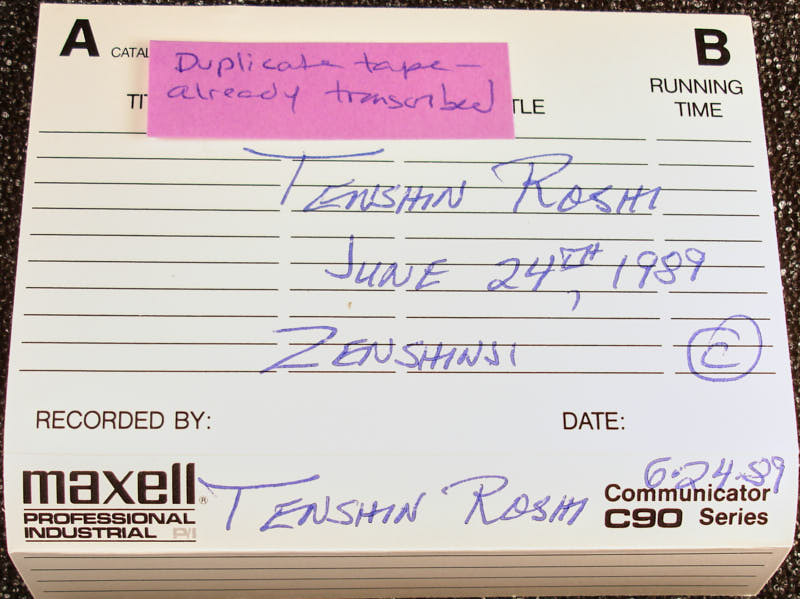 A
CATAL
Duplicate tape –
already transcribed
B
RUNNING
TIME
TI
TLE
TENSHIN ROSHI
JUNE 24TH, 1989
ZENSHINJI
C
RECORDED BY:
DATE:
maxell®
PROFESSIONAL
INDUSTRIAL P/I
TENSHIN ROSHI
6-24-89
Communicator
C90 Series